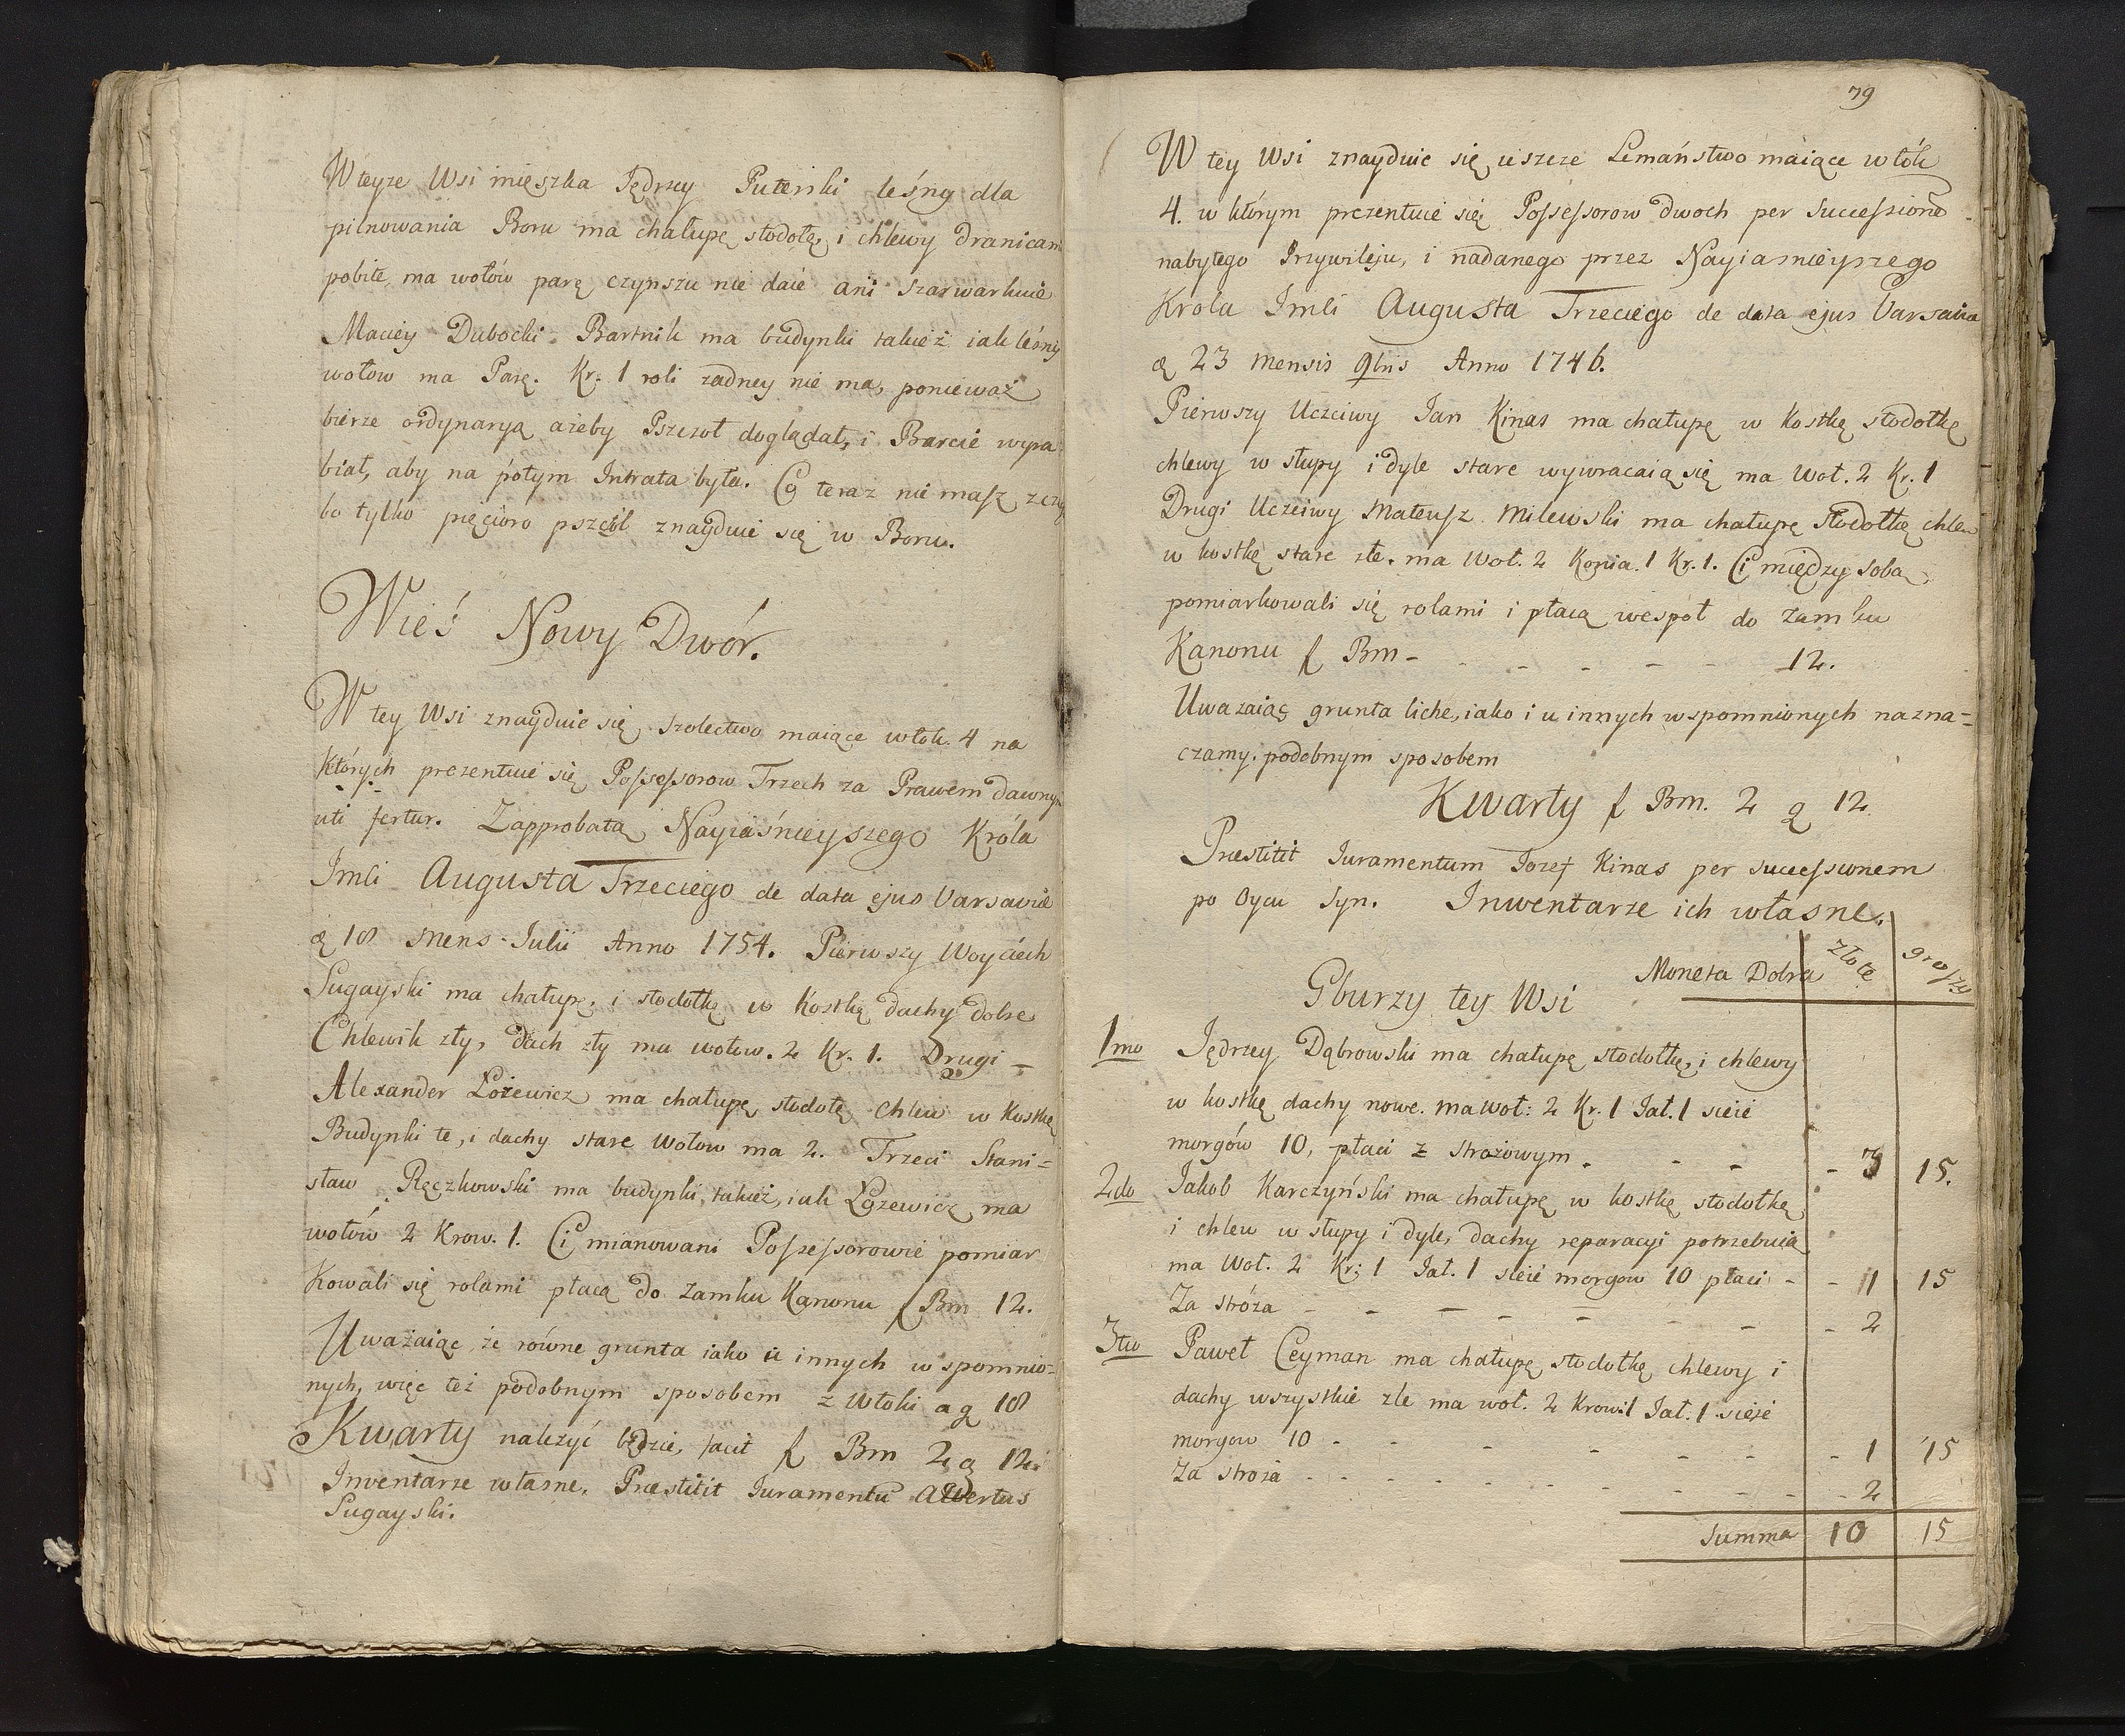 W teyze Wsi mięszka Jędrzey Puterski leśny dla
pilnowania Boru ma chałupę stodołę, i chlewy dranicami
pobite, ma wołów parę czynszu nie daie ani szarwarkuie
Maciey Dubocki Bartnik ma budynki takież iak leśny
wołow ma Parę. Kr: 1 roli zadney nie ma, ponieważ
bierze ordynaryą ażeby Pszczoł doglądał, i Barcie wyra-
biał, aby na potym Intrata była. Cą teraz nie masz z czeg
bo tylko pięcioro pszczół znayduie się w Boru.
Wieś Nowy Dwór.
W tey Wsi znayduie się Szolectwo maiące włok. 4 na
których prezentuie się Possessorow Trzech za Prawem dawnym
uti fertur. Zapprobatą Nayiaśnieyszego Króla
Jmći Augusta Trzeciego de data ejus Varsavie
ą 18 Mens Julii Anno 1754. Pierwszy Woyciech
Sugayski ma chałupę, i stodołkę w Kostkę dachy dobre
Chlewik zły, dach zły ma wołow. 2 Kr. 1. Drugi -
Alexander Lożewicz ma chałupę stodołę chlew w Kostkę
Budynki te, i dachy stare Wołow ma 2. Trzeci Stani=
sław Ręczkowski ma budynki, takież, iak Lożewicz, ma
wołów 2 Krow. 1. Ci mianowani Possessorowie pomiar
kowali się rolami płacą do Zamku Kanonu f Bm 12.
Uważaiąc, że równe grunta iako u innych wspomnio=
nych, więc też podobnym sposobem z Włoki a g 18
Kwarty należyć będzie, facit f Bm 2 g 12.
Inwentarze własne. Præstitit Juramentu Albertus
Sugayski.
79
W tey Wsi znayduie się ieszcze Lemaństwo maiące włók
4. w którym prezentuie się Possessorow dwoch per successione
nabytego Przywileju, i nadanego przez Nayiasnieyszego
Krola Jmći Augusta Trzeciego de data ejus Varsavia
ą 23 Mensis 9bris Anno 1746.
Pierwszy Uczciwy Jan Kinas ma chałupę w Kostkę stodołkę
chlewy w słupy i dyle stare wywracaią się ma Woł. 2 Kr. 1
Drugi Uczciwy Mateusz Milewski ma chałupę stodołkę chlew
w kostkę stare złe. ma Woł. 2 Konia. 1 Kr. 1. Ci między sobą
pomiarkowali się rolami i płacą wespoł do Zamku
Kanonu f Bm - - - - - - 12.
Uwazaiąc grunta liche, iako i u innych wspomnionych nazna=
czamy. podobnym sposobem
Kwarty f Bm. 2 g 12
Præstitit Juramentum Jozef Kinas per successionem
po Oycu Syn. Inwentarze ich własne.
Gburzy tey Wsi Moneta Dobra złote groszy
1mo Jędrzey Dąbrowski ma chałupę stodołkę, i chlewy
w kostkę dachy nowe. ma woł: 2 Kr. 1 Jał. 1 sieie
morgów 10, płaci z strożowym - - - - 3 15.
2do Jakob Karczyński ma chałupę w kostkę stodołkę
i chlew w słupy i dyle, dachy reparacyi potrzebuią
ma Woł. 2 Kr: 1 Jał. 1 sieie morgow 10 płaci - - 1 15
Za stróża - - - - - - - - 2
3tio Paweł Ceyman ma chałupę stodołkę chlewy i
dachy wszystkie złe ma woł. 2 Krow: 1 Jał: 1 sieie
morgow 10 - - - - - - - 1 15
Za stroża - - - - - - - - - 2
Summa 10 15